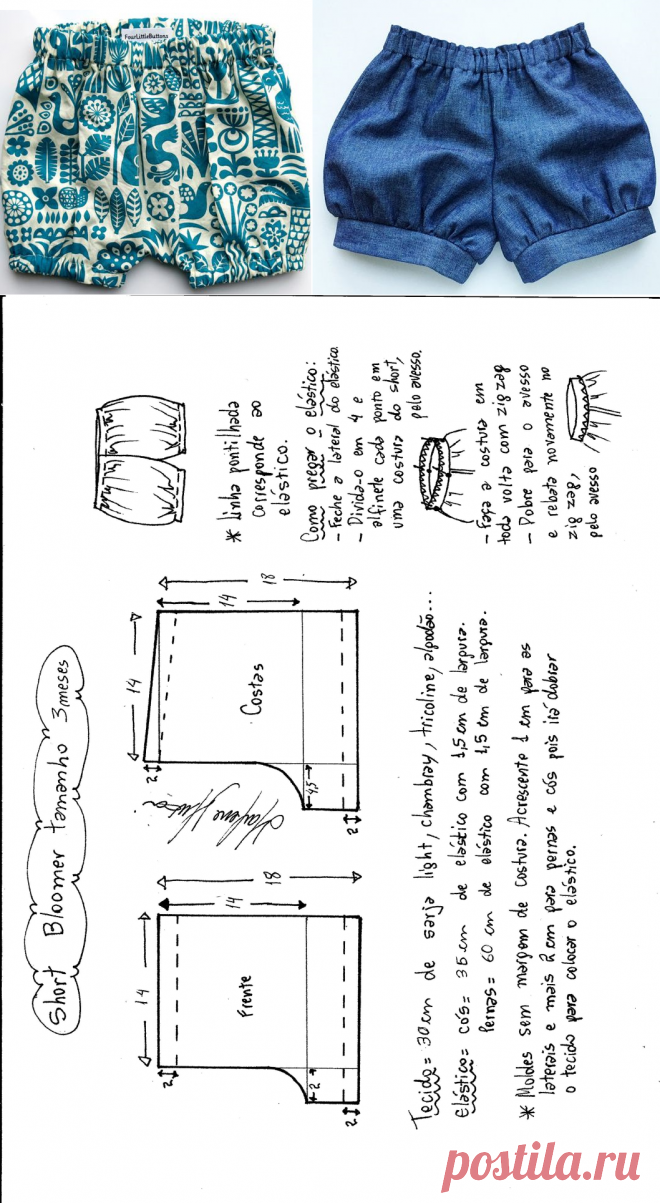 FourLittleButtons
Short Bloomer tamanho 3 meses
14
2
Frente
14
18
2
2
14
2
Costas
14
18
4,5
2
Tecido = 30 cm de sarja light, chambray, tricoline, algodão...
Elástico = cós = 35 cm de elástico com 1,5 cm de largura.
Pernas = 60 cm de elástico com 1,5 cm de largura.
* Moldes sem margem de costura. Acrescente 1 cm para as
laterais e mais 2 cm para pernas e cós pois irá dobrar
o tecido para colocar o elástico.
* linha pontilhada
corresponde ao
elástico.
Como pregar o elástico:
- Feche a lateral do elástico
- Divida-o em 4 e
alfinete cada ponto em
uma costura do short,
pelo avesso.
- Faça a costura em
toda volta com zigzag
- Dobre para o avesso
e rebata novamente no
zig zag,
pelo avesso
postila.ru